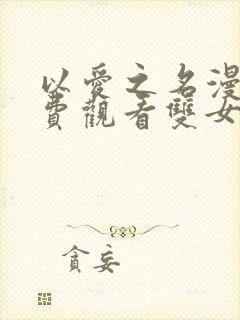 以愛之名漫
費觀看雙女
貪妄